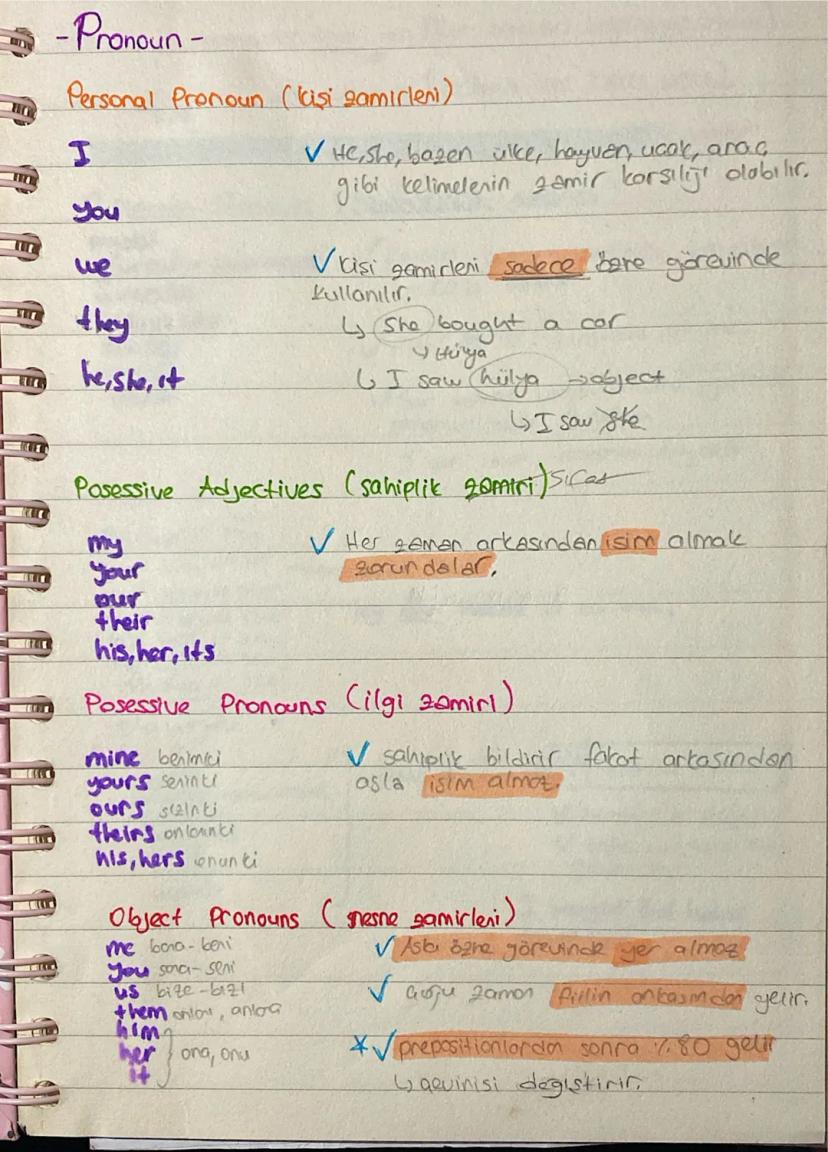 - Pronoun -
Personal Pronoun (kişi zamirleri)
I
✓ He, she, bazen ülke, hayvan, uçak, araç
gibi kelimelerin zamir karşılığı olabilir.
you
we
✓ Kişi zamirleri sadece özne görevinde
kullanılır.
they
↳ She bought a car
↳ Hülya
he, she, it
↳ I saw hülya → object
↳ I saw she
Posessive Adjectives (sahiplik zamiri) sıfat
my
✓ Her zaman arkasından isim almak
your
zorundalar.
our
their
his, her, its
Posessive Pronouns (ilgi zamiri)
mine benimki
✓ sahiplik bildirir fakat arkasından
yours seninki
asla isim almaz.
ours
theirs onlarınki
his, hers onunki
Object Pronouns (nesne zamirleri)
me bana - beni
✓ Asla özne görevinde yer almaz
you sana - seni
us bize - bizi
✓ Çoğu zaman fiilin arkasından gelir.
them onları, onlara
him
her } ona, onu
✶✓ prepositionlardan sonra %80 gelir
it
↳ çevirisi değiştirir.